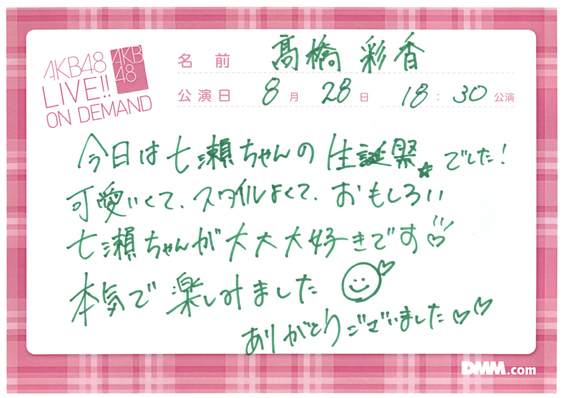 AKB48
LIVE!!
ON DEMAND
AKB
48
名前 髙橋彩香
公演日 8月28日 18:30公演
今日は七瀬ちゃんの生誕祭☆でした!
可愛いくて、スタイルよくて、おもしろい
七瀬ちゃんが大大大好きです♡
本気で楽しみました
ありがとうございました♡♡
DMM.com